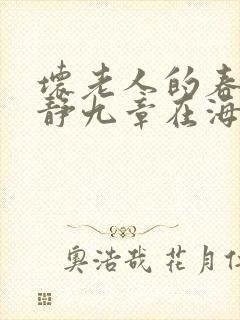 壞老人的春
靜九章在海
奧浩哉 花月仁